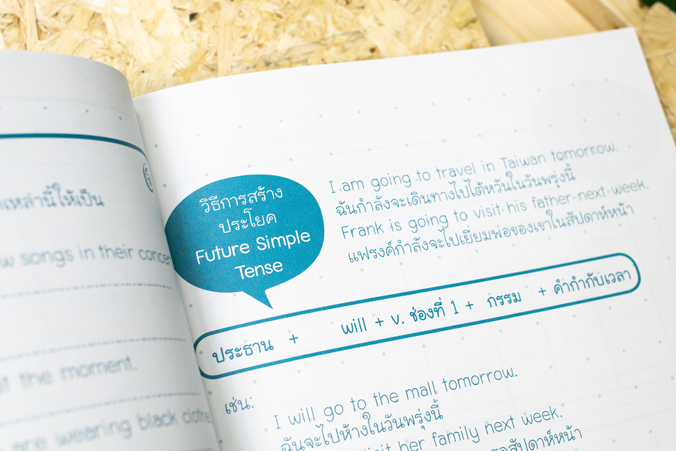 เหล่านี้ให้เป็น
songs in their
the moment.
are wearing black
วิธีการสร้าง
ประโยค
Future Simple
Tense
I am going to travel in Taiwan tomorrow.
ฉันกำลังจะเดินทางไปไต้หวันในวันพรุ่งนี้
Frank is going to visit his father next week.
แฟรงค์กำลังจะไปเยี่ยมพ่อของเขาในสัปดาห์หน้า
ประธาน + will + v. ช่องที่ 1 + กรรม + คำกำกับเวลา
เช่น:
I will go to the mall tomorrow.
ฉันจะไปห้างในวันพรุ่งนี้
her family next week.
สัปดาห์หน้า